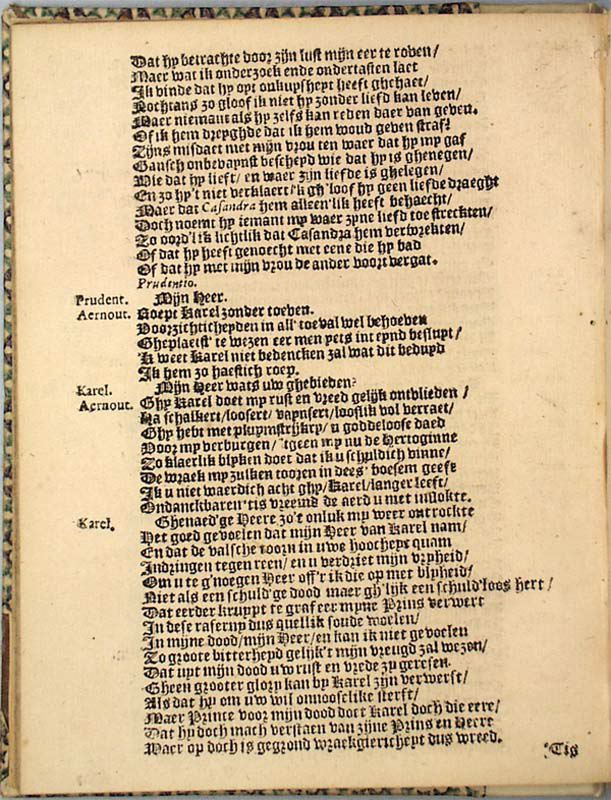 Dat hy betrachte door zijn lust mijn eer te roven/
Maer wat ik onderzoek ende ondertasten laet
Ik vinde dat hy oyt onkuysheyt heeft ghehaet/
Nochtans zo gloof ik niet hy zonder liefd kan leven/
Maer niemant als hy zelfs kan reden daer van geven.
Of ik hem dreyghde dat ik hem woud geven straf?
Zijns misdaet met mijn vrou ten waer dat hy my gaf
Gansch onbevaynst bescheyd wie dat hy is ghenegen/
Wie dat hy lieft/ en waer zijn liefde is ghelegen/
En zo hy't niet verklaert/'k gh'loof hy geen liefde draeght
Maer dat Casandra hem alleen'lik heeft behaecht/
Doch noemt hy iemant my waer zyne liefd toe streckten/
Zo oord'lik lichtlik dat Casandra hem verwrekten/
Of dat hy heeft genoecht met eene die hy bad
Of dat hy met mijn vrou de ander voort vergat.
Prudentio.
Prudent. Mijn Heer.
Aernout. Roept Karel zonder toeven.
Voorzichticheyden in all' toeval wel behoeven
Gheplaetst' te wezen eer men yets int eynd besluyt/
'K weet Karel niet bedencken zal wat dit beduyd
Ik hem zo haestich roep.
Karel. Mijn Heer wats uw ghebieden?
Aernout. Ghy Karel doet my rust en vreed gelijk ontvlieden/
Ha schalkert/loosert/vaynsert/looslik vol verraet/
Ghy hebt met pluymstrijkry/u goddeloose daed
Voor my verburgen/ 'tgeen my nu de Hertoginne
Zo klaerlik blyken doet dat ik u schuldich vinne/
De wraek my zulken tooren in dees' boesem geeft
Ik u niet waerdich acht ghy/Karel/langer leeft/
Ondanckbaren 'tis vreemd de aerd u niet inslokte.
Karel. Ghenaed'ge Heere zo't onluk my weer ontrockte
Het goed gevoelen dat mijn Heer van Karel nam/
En dat de valsche toorn in uwe hoocheyt quam
Indringen tegen reen/ en u verdriet mijn vryheid/
Om u te g'noegen Heer off'r ik die op met blyheid/
Niet als een schuld'ge dood maer gh'lijk een schuld'loos hert/
Dat eerder kruypt te graf eer myne Prins verwert
In dese raserny dus quellik soude woelen/
In mijne dood/mijn Heer/en kan ik niet gevoelen
Zo groote bitterheyd gelijk't mijn vreugd zal wezen/
Dat uyt mijn dood uw rust en vrede zy geresen.
Gheen grooter glory kan by Karel zijn verwerft/
Als dat hy om uw wil onnooselike sterft/
Maer Prince voor mijn dood doet Karel doch die eere/
Dat hy doch mach verstaen van zijne Prins en Heere
Waer op doch is gegrond wraekgiericheyt dus wreed.
'Tis